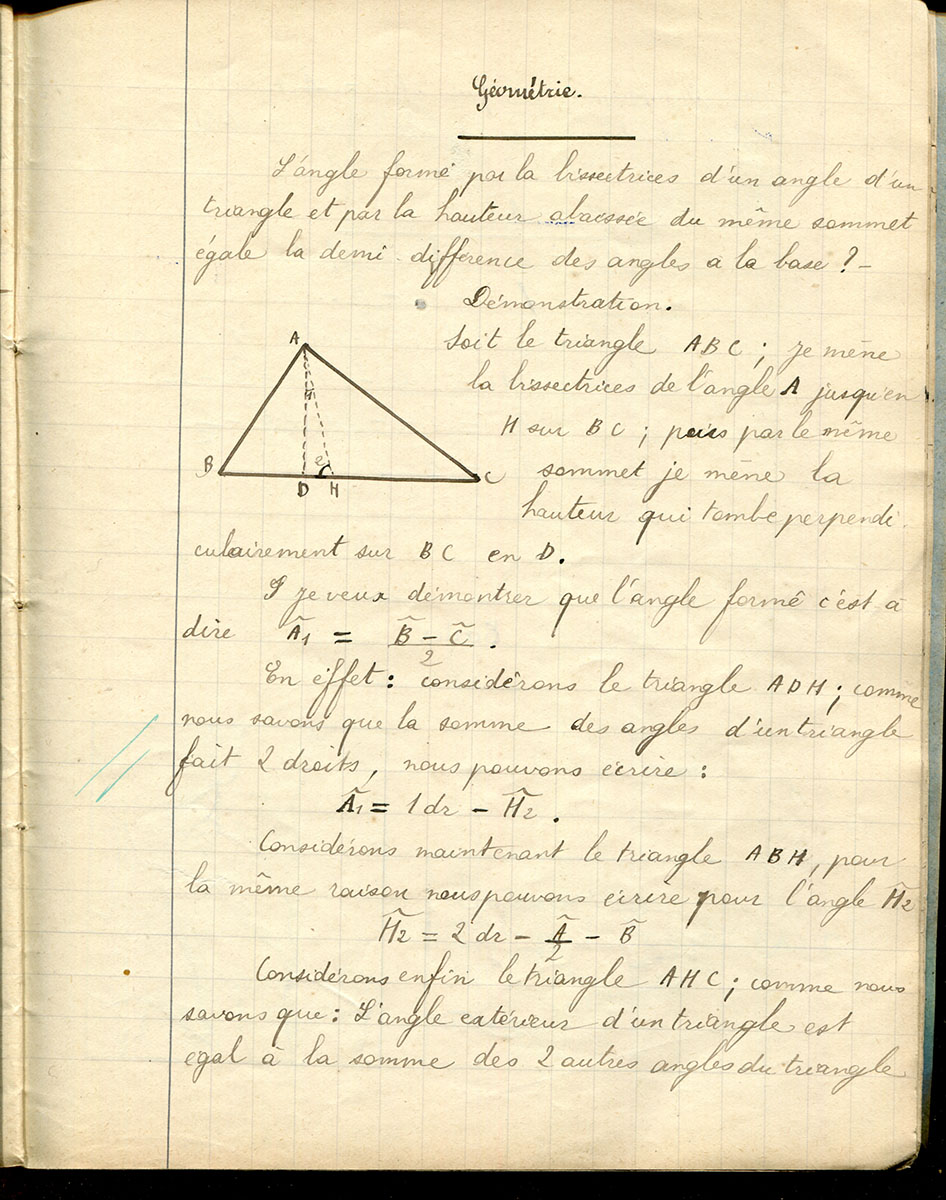 Géométrie.
L'angle formé par la bissectrices d'un angle d'un
triangle et par la hauteur abaissée du même sommet
égale la demi-différence des angles a la base ? -
Démonstration.
Soit le triangle ABC ; je mène
la bissectrices de l'angle A jusqu'en
H sur BC ; puis par le même
sommet je mène la
hauteur qui tombe perpendi
culairement sur BC en D.
A
1
B
2
C
D H
J je veux démontrer que l'angle formé c'est à
dire Â1 = B̂ - Ĉ / 2 .
En effet : considérons le triangle ADH ; comme
nous savons que la somme des angles d'un triangle
fait 2 droits, nous pouvons écrire :
Â1 = 1 dr - Ĥ2 .
Considérons maintenant le triangle ABH, pour
la même raison nous pouvons écrire pour l'angle Ĥ2
Ĥ2 = 2 dr - Â/2 - B̂
Considérons enfin le triangle AHC ; comme nous
savons que : L'angle extérieur d'un triangle est
egal à la somme des 2 autres angles du triangle